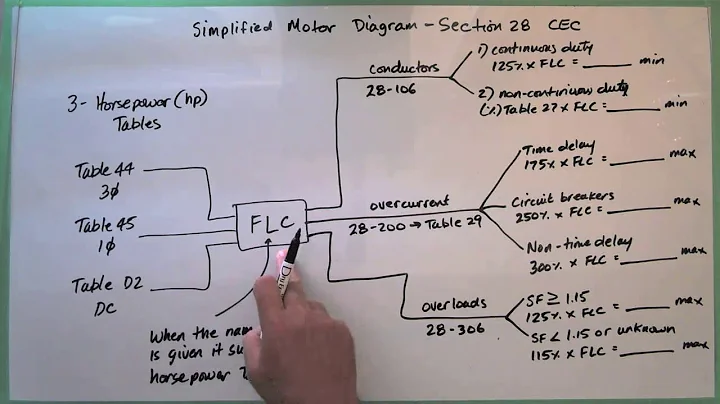 Simplified Motor Diagram - Section 28 CEC
3 - Horsepower (hp)
Tables
Table 44
3ø
Table 45
1ø
Table D2
DC
FLC
When the nam
is given it su
horsepower
conductors
28-106
1) continuous duty
125% x FLC = ______ min
2) non-continuous duty
(%) Table 27 x FLC = ______ min
overcurrent
28-200 → Table 29
Time delay
175% x FLC = ______ max
Circuit breakers
250% x FLC = ______ max
Non-time delay
300% x FLC = ______ max
overloads
28-306
SF ≥ 1.15
125% x FLC = ______ max
SF < 1.15 or unknown
115% x FLC = ______ max